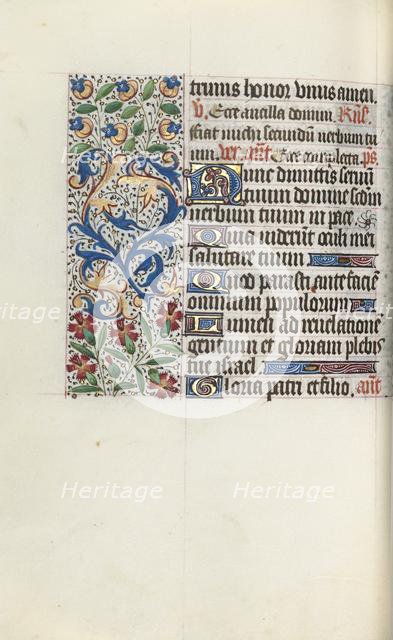 trinus honor unus amen.
V. Ecce ancilla domini. Rūs.
fiat michi secundū verbum tu
um. Vr. añt. Ecce completa. ps
Nunc dimittis servū
tuum domine scdm
verbum tuum in pace.
Quia viderunt oculi mei
salutare tuum
Quod parasti ante faciē
omnium populorum
Lumen ad revelatione
gentium et gloriam plebis
tue israel
Gloria patri et filio. añt
Heritage Heritage
Heritage Heritage